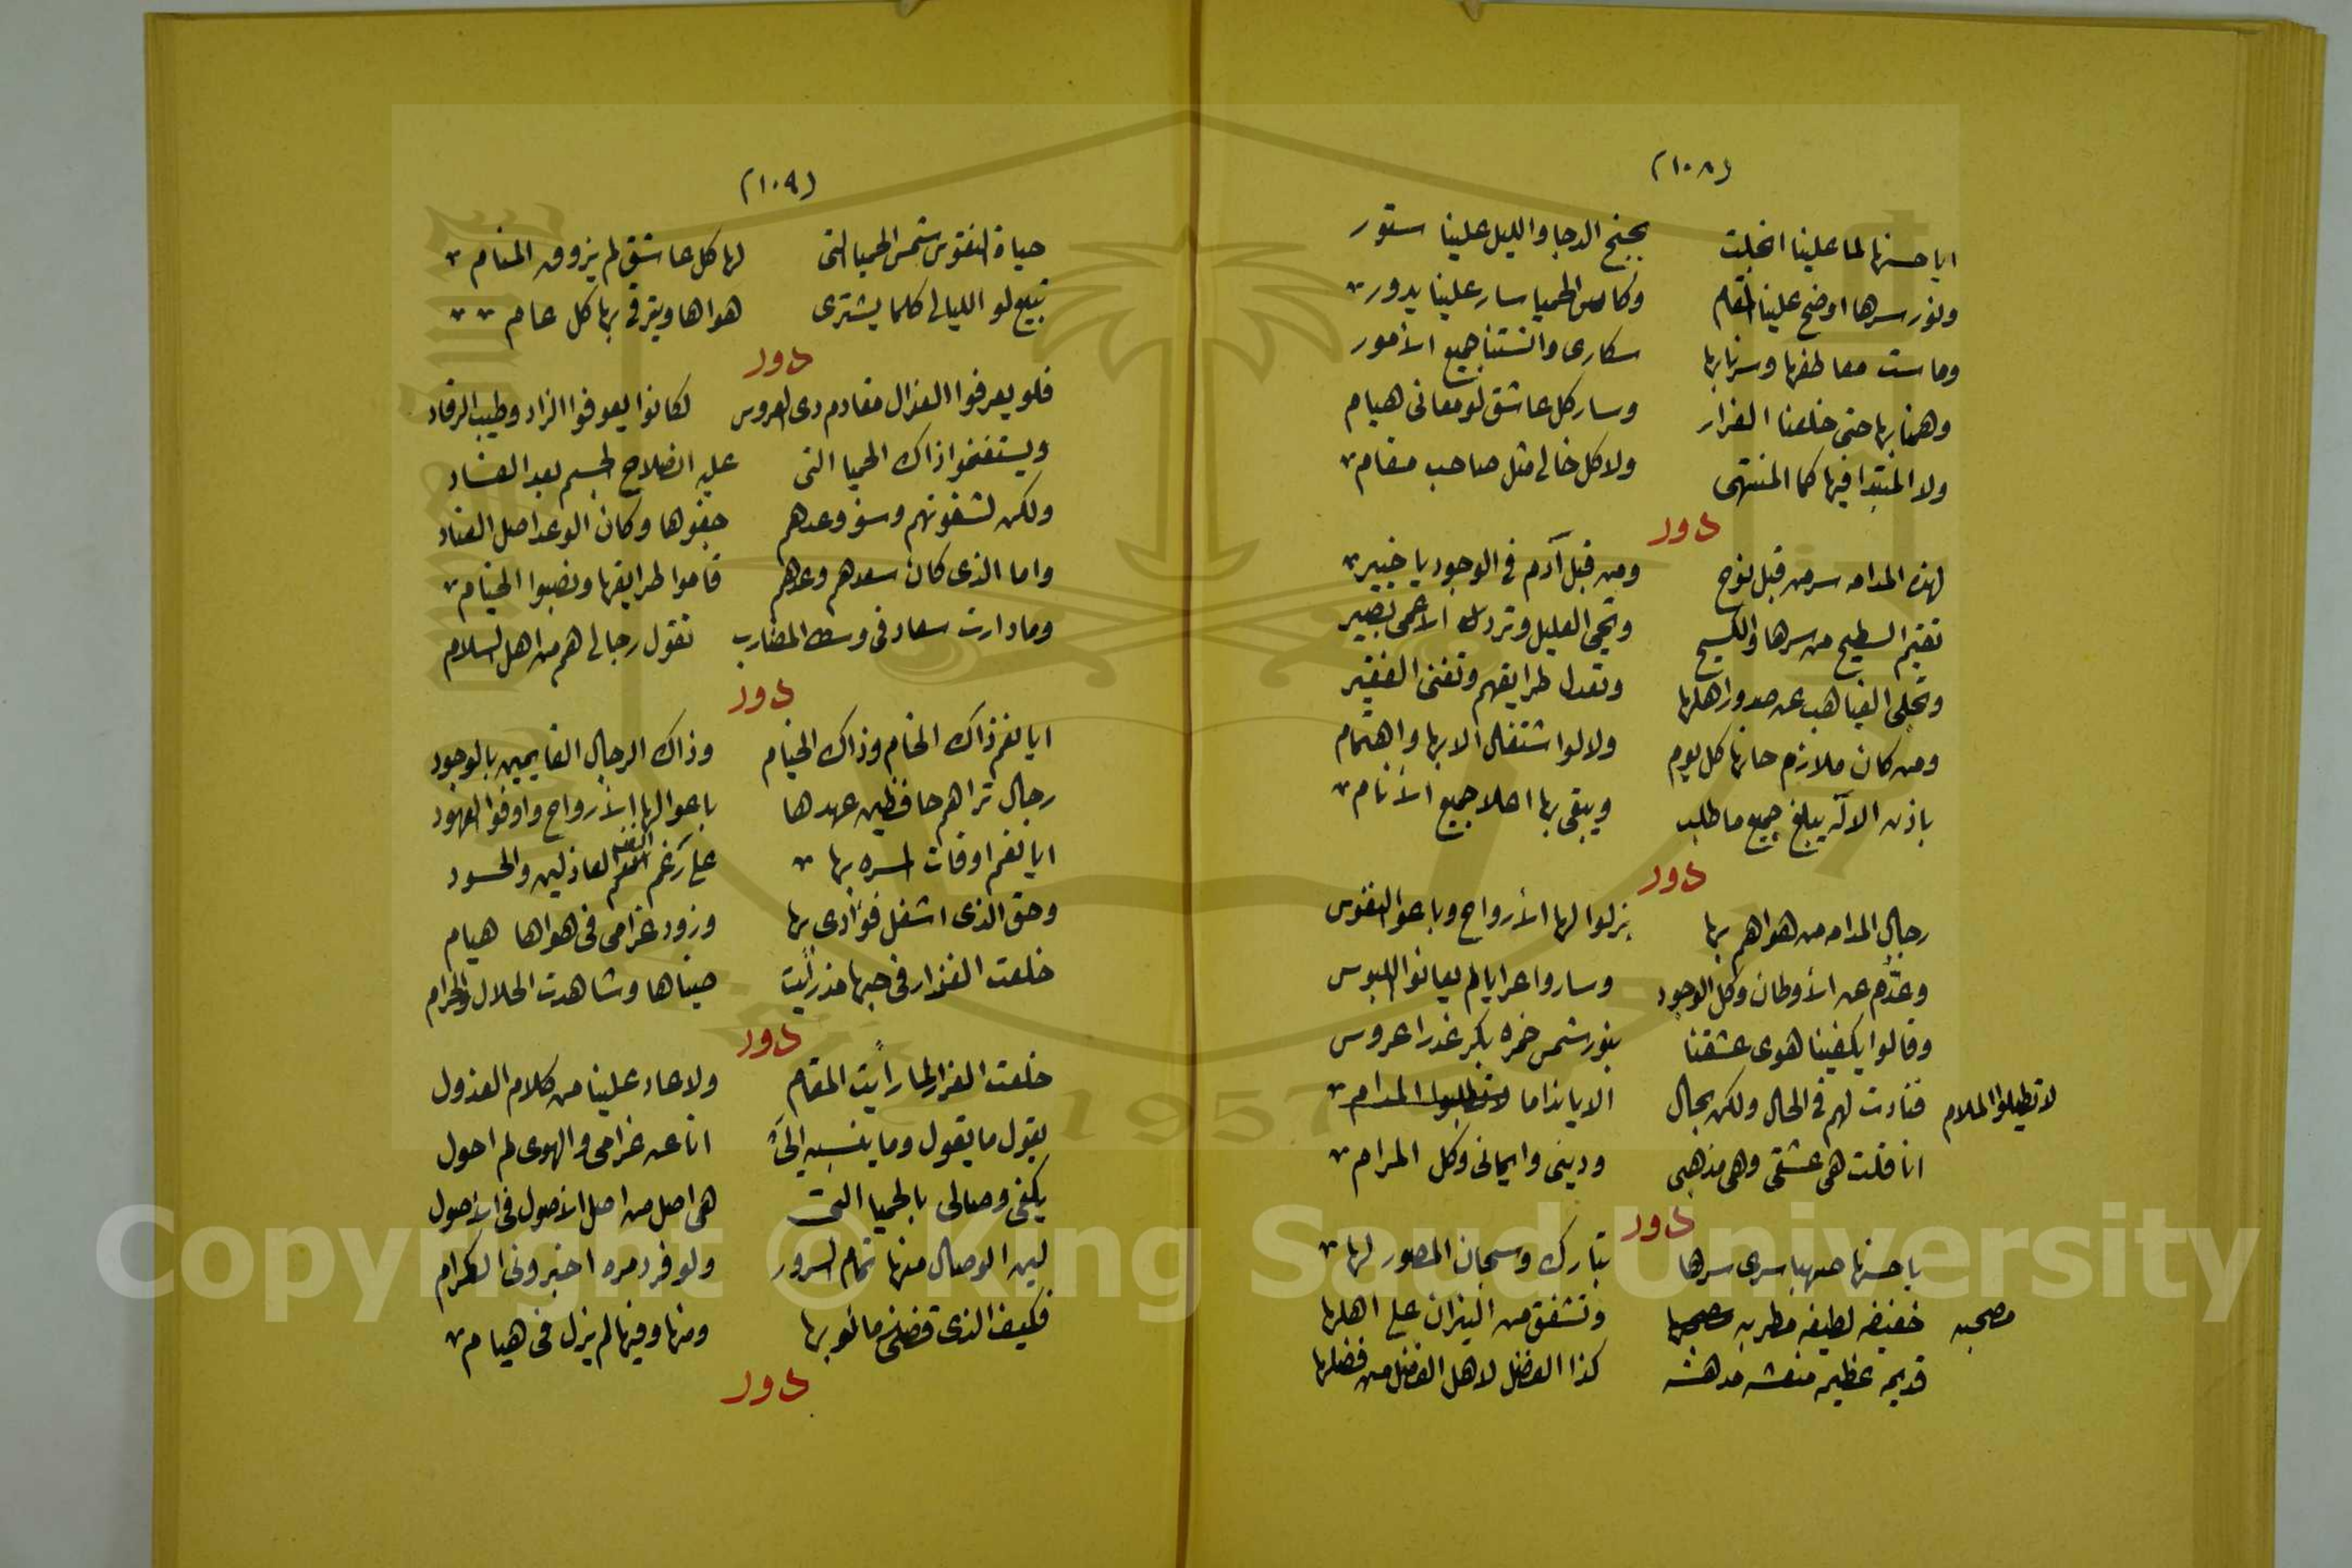 (١٠٨)
ايا حسنها لما علينا انجلت بجنح الدجا والليل علينا ستور
ونور سرها اوضح علينا المقام وكاس الحميا سار علينا يدور
وماست معاطفها وسرنا بها سكارى وانستنا جميع الأمور
وهمنا بها حتى خلعنا العزار وسار كل عاشق لو معانى هيام
ولا المبتدا فيها كما المنتهى ولا كل خالى مثل صاحب مقام
دور
لهذه المدامه سر من قبل نوح ومن قبل آدم فى الوجود يا خبير
تقيم السطيح من سرها والكسيح وتحيى العليل وتردك الأعمى بصير
وتجلى الغياهب عن صدور اهلها وتعدل طرايقهم وتغنى الفقير
ومن كان ملازم حانها كل يوم ولا لوا شتغال الا بها واهتمام
باذن الاله يبلغ جميع ما طلب ويبقى بها اهلا جميع الأنام
دور
رجال المدامه من هواهم بها بزلوا لها الأرواح وباعوا النفوس
وعدم عن الأوطان وكل الوجود وساروا عرايا لم يعانوا اللبوس
وقالوا يكفينا هوى عشقنا بنور شمس خمره بكر غدرا عروس
لا تطيلوا الملام فنادت لهم فى الحال ولكن بحال الا يا نداما لا تطلبوا المدام
انا قلت هى عشقى وهى مذهبى ودينى وايمانى وكل المرام
دور
يا حسنها صهبا سرى سرها تبارك وسبحان المصور لها
مصحبه خفيفه لطيفه مطربه صحبها وتشفق من النيران على اهلها
قديمه عظيمه منعشه مدهشه كذا الفضل لاهل الفضل من فضلها
(١٠٩)
حياة النفوس شمس الحميا التى لها كل عاشق لم يزوق المنام
تبيع لو الليالى كلما يشترى هواها ويترقى بها كل عام
دور
فلو يعرفوا العزال مقادم دى العروس لكانوا يعوفوا الزاد وطيب الرقاد
ويستغنموا ذاك الحميا التى عليه انصلاح الجسم بعد الفساد
ولكن لشقوتهم وسؤ وعدهم جفوها وكان الوعد اصل العناد
واما الذى كان سعدهم وعدهم قاموا طرايقها ونصبوا الخيام
وما دارت سعاد فى وسط المضارب تقول رجالى هم من اهل السلام
دور
ايا نعم ذاك الخام وذاك الخيام وذاك الرجال القايمين بالوجود
رجال تراهم حافظين عهدها باعوا لها الأرواح واوفوا العهود
ايا نعم اوقات المسره بها على رغم انف العاذلين والحسود
وحق الذى اشغل فؤادى بها وزود غرامى فى هواها هيام
خلعت العزار فى حبها مذ رأيت ضياها وشاهدت الحلال والحرام
دور
خلعت العزار لما رأيت المقام ولا عاد علينا من كلام العذول
يقول ما يقول وما ينسبه الىّ انا عن غرامى والهوى لم احول
يكفى وصالى بالحميا التى هى اصل من اصل الأصول فى الأصول
لين الوصال منها تمام السرور ولو فرد مره اخبرونى الكرام
فكيف الذى قضى مائو بها ومنها وفيها لم يزل فى هيام
دور